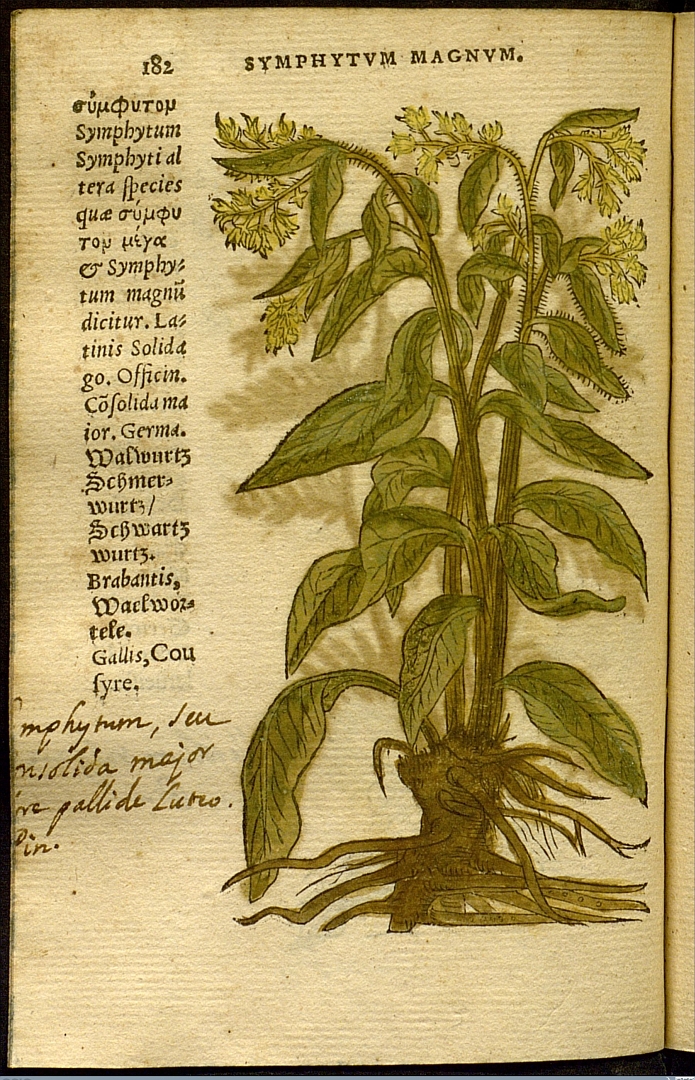 182
SYMPHYTVM MAGNVM.
σύμφυτομ
Symphytum
Symphyti al
tera species
quæ σύμφυ
τομ μέγα
& Symphy⸗
tum magnũ
dicitur. La⸗
tinis Solida
go. Officin.
Cõsolida ma
ior. Germa.
Walwurtz
Schmer⸗
wurtz/
Schwartz
wurtz.
Brabantis,
Waelwor⸗
tele.
Gallis, Cou
syre.
mphytum, seu
nsolida major
re pallide Luteo.
Pin.